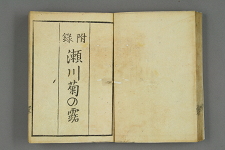 附録
瀬川菊の露